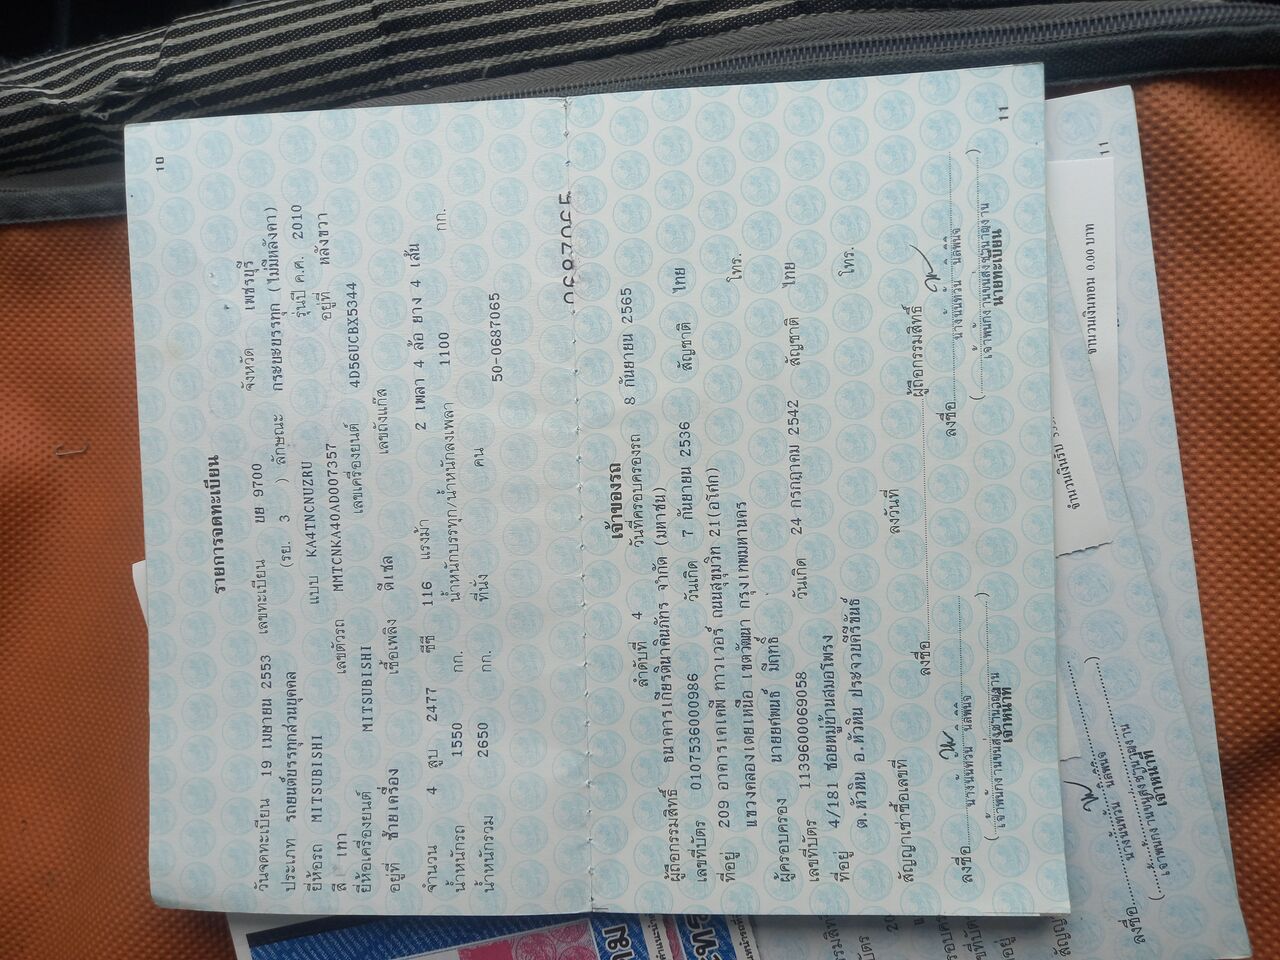 10
รายการจดทะเบียน
วันจดทะเบียน 19 เมษายน 2553 เลขทะเบียน บย 9700 จังหวัด เพชรบุรี
ประเภท รถยนต์บรรทุกส่วนบุคคล (รย. 3 ) ลักษณะ กระบะบรรทุก (ไม่มีหลังคา)
ยี่ห้อรถ MITSUBISHI แบบ KA4TNCNUZRU รุ่นปี ค.ศ. 2010
สี เทา เลขตัวรถ MMTCNKA40AD007357 อยู่ที่ หลังขวา
ยี่ห้อเครื่องยนต์ MITSUBISHI เลขเครื่องยนต์ 4D56UCBX5344
อยู่ที่ ซ้ายเครื่อง เชื้อเพลิง ดีเซล เลขถังแก๊ส
จำนวน 4 สูบ 2477 ซีซี 116 แรงม้า 2 เพลา 4 ล้อ ยาง 4 เส้น
น้ำหนักรถ 1550 กก. น้ำหนักบรรทุก/น้ำหนักลงเพลา 1100 กก.
น้ำหนักรวม 2650 กก. ที่นั่ง คน
50-0687065
0687065
เจ้าของรถ
ลำดับที่ 4 วันที่ครอบครองรถ 8 กันยายน 2565
ผู้ถือกรรมสิทธิ์ ธนาคารเกียรตินาคินภัทร จำกัด (มหาชน)
เลขที่บัตร 0107536000986 วันเกิด 7 กันยายน 2536 สัญชาติ ไทย
ที่อยู่ 209 อาคารเคเคพี ทาวเวอร์ ถนนสุขุมวิท 21(อโศก) โทร.
แขวงคลองเตยเหนือ เขตวัฒนา กรุงเทพมหานคร
ผู้ครอบครอง นายยศพนธ์ มีฤทธิ์
เลขที่บัตร 1139600069058 วันเกิด 24 กรกฎาคม 2542 สัญชาติ ไทย
ที่อยู่ 4/181 ซอยหมู่บ้านสมอโพรง โทร.
ต.หัวหิน อ.หัวหิน ประจวบคีรีขันธ์
สัญญาเช่าซื้อเลขที่ ลงวันที่
ลงชื่อ ผู้ถือกรรมสิทธิ์
ลงชื่อ ลงชื่อ
เจ้าหน้าที่ นายทะเบียน
11
11
จำนวนเงินทอน 0.00 บาท
จำนวนเงินรับ
ลงชื่อ
เจ้าหน้าที่